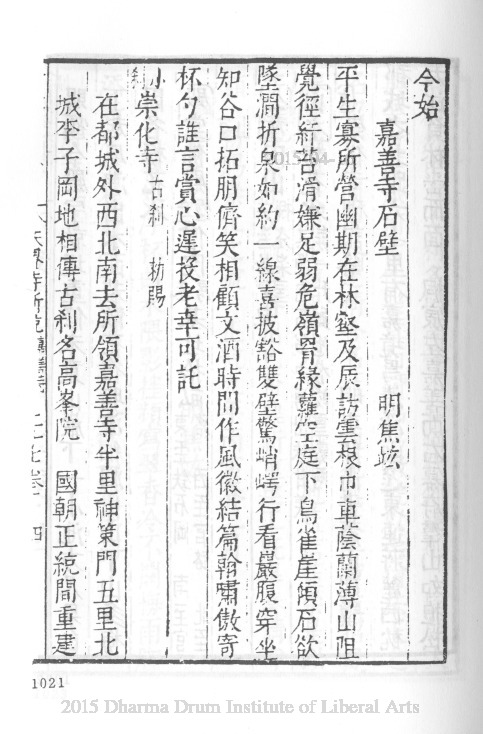 今始
嘉善寺石壁 明焦竑
平生寡所營幽期在林壑及辰訪雲根巾車蔭蘭薄山阻
覺徑紆苔滑嫌足弱危嶺罥緣蘿空庭下鳥雀崖傾石欲
墜澗折泉如約一線喜披豁雙壁驚峭崿行看嚴腹穿坐
知谷口拓朋儕笑相顧文酒時間作風徽結篇翰嘯傲寄
杯勺誰言賞心遲投老幸可託
小崇化寺 古剎 勑賜
在都城外西北南去所領嘉善寺半里神策門五里北
城李子岡地相傳古剎名高峯院 國朝正統間重建
四
1021
2015 Dharma Drum Institute of Liberal Arts